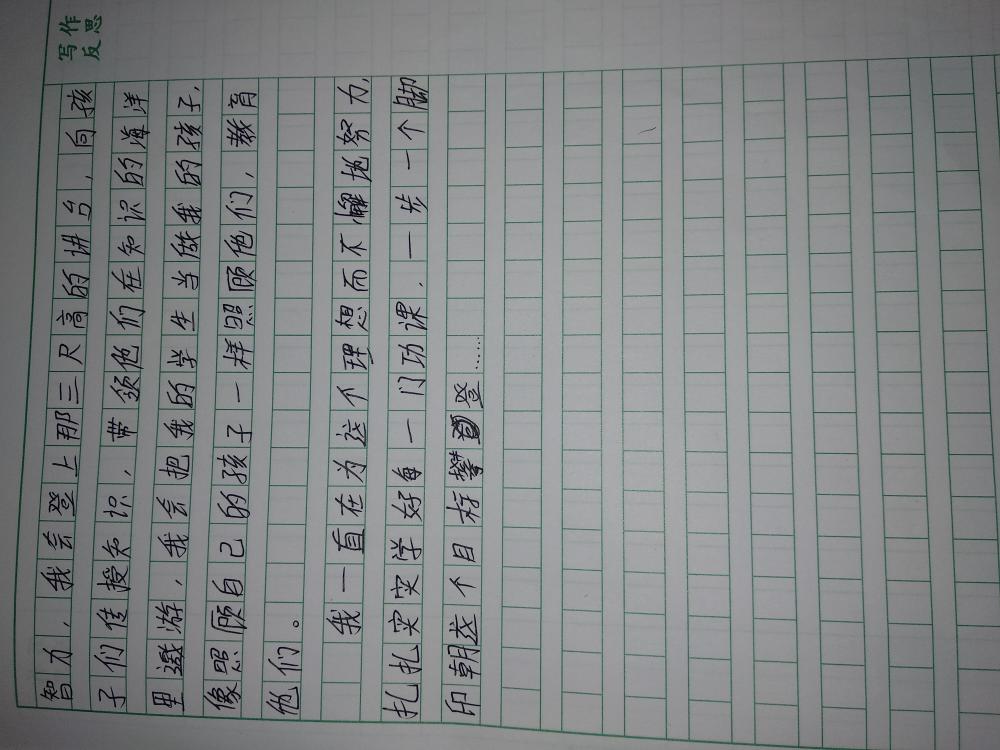 写作
反思
智力，我会登上那三尺高的讲台，向孩
子们传授知识，带领他们在知识的海洋
里遨游，我会把我的学生当做我的孩子，
像照顾自己的孩子一样照顾他们，栽育
他们。
我一直在为这个理想而不懈地努力，
扎扎实实学好每一门功课，一步一个脚
印朝这个目标攀登……